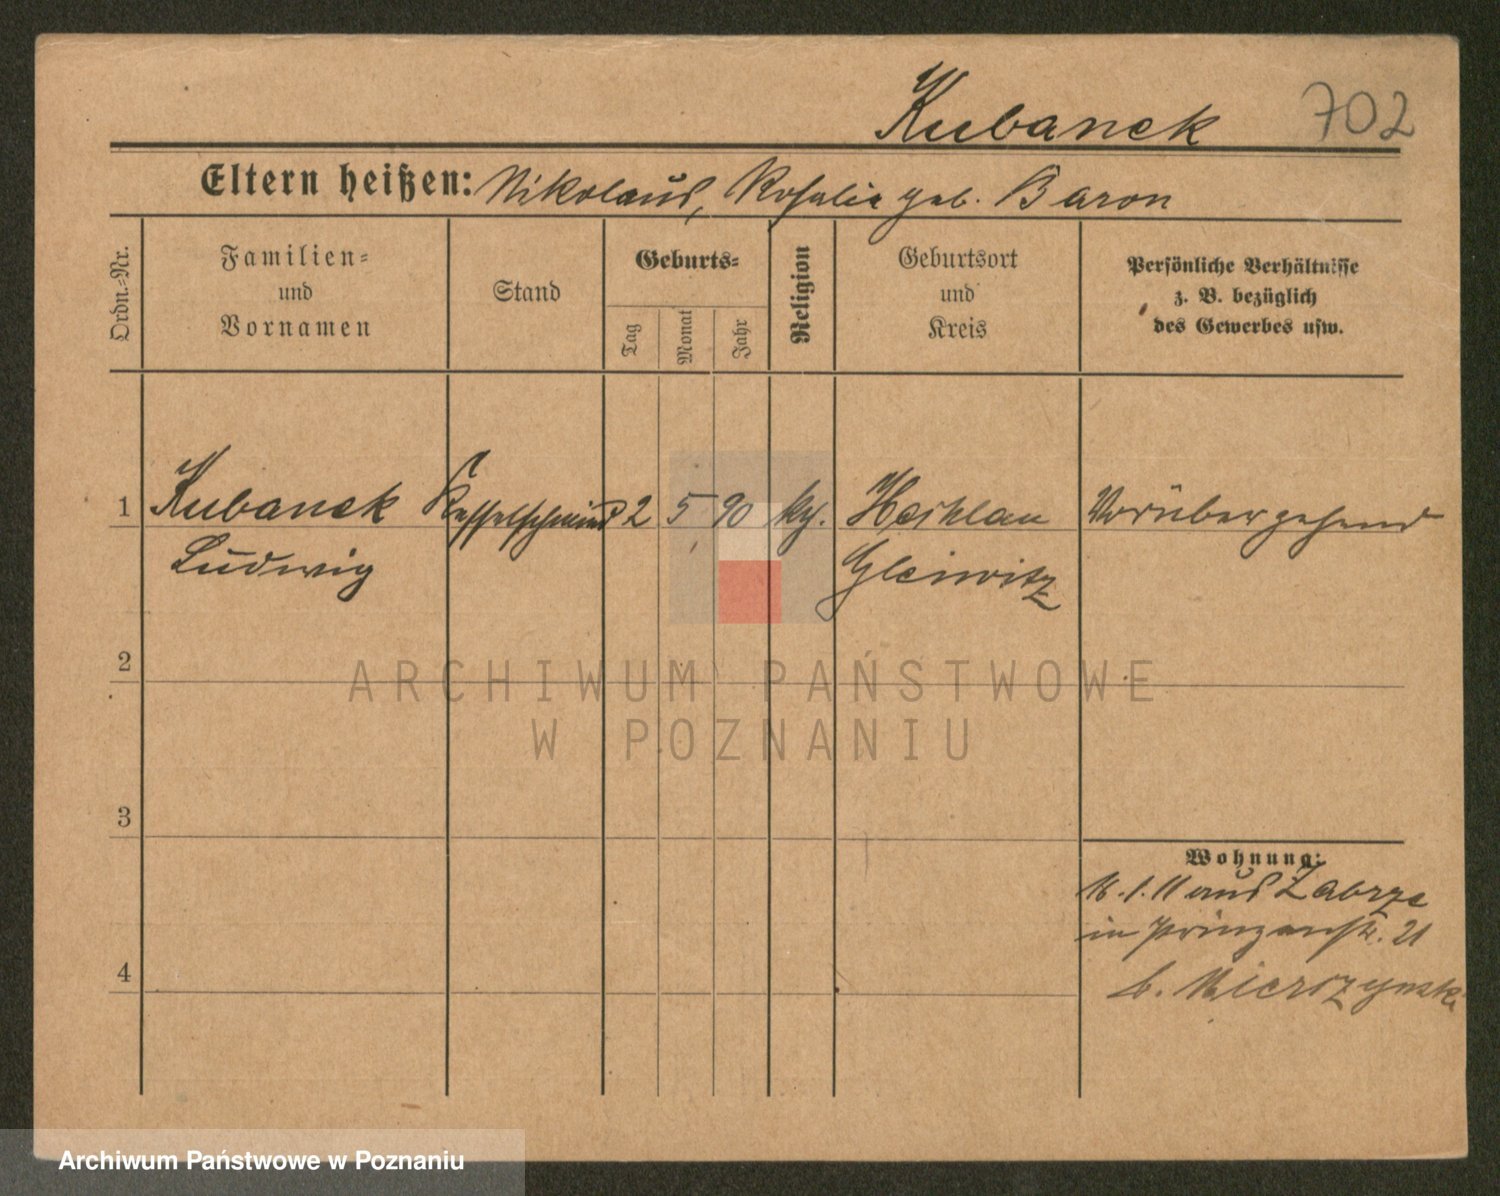 Kubanek 702
Eltern heißen: Nikolaus, Rosalie geb. Baron
Ordn.=Nr.
Familien=
und
Vornamen
Stand
Geburts=
Tag
Monat
Jahr
Religion
Geburtsort
und
Kreis
Persönliche Verhältnisse
z. B. bezüglich
des Gewerbes usw.
1 Kubanek Kesselschmied 2 5 90 kt. Vorübergehend
Ludwig Gleiwitz
2
ARCHIWUM PAŃSTWOWE
W POZNANIU
3
Wohnung:
1.11 aus Zabrze
in Prinzenstr. 21
4
b.
Archiwum Państwowe w Poznaniu